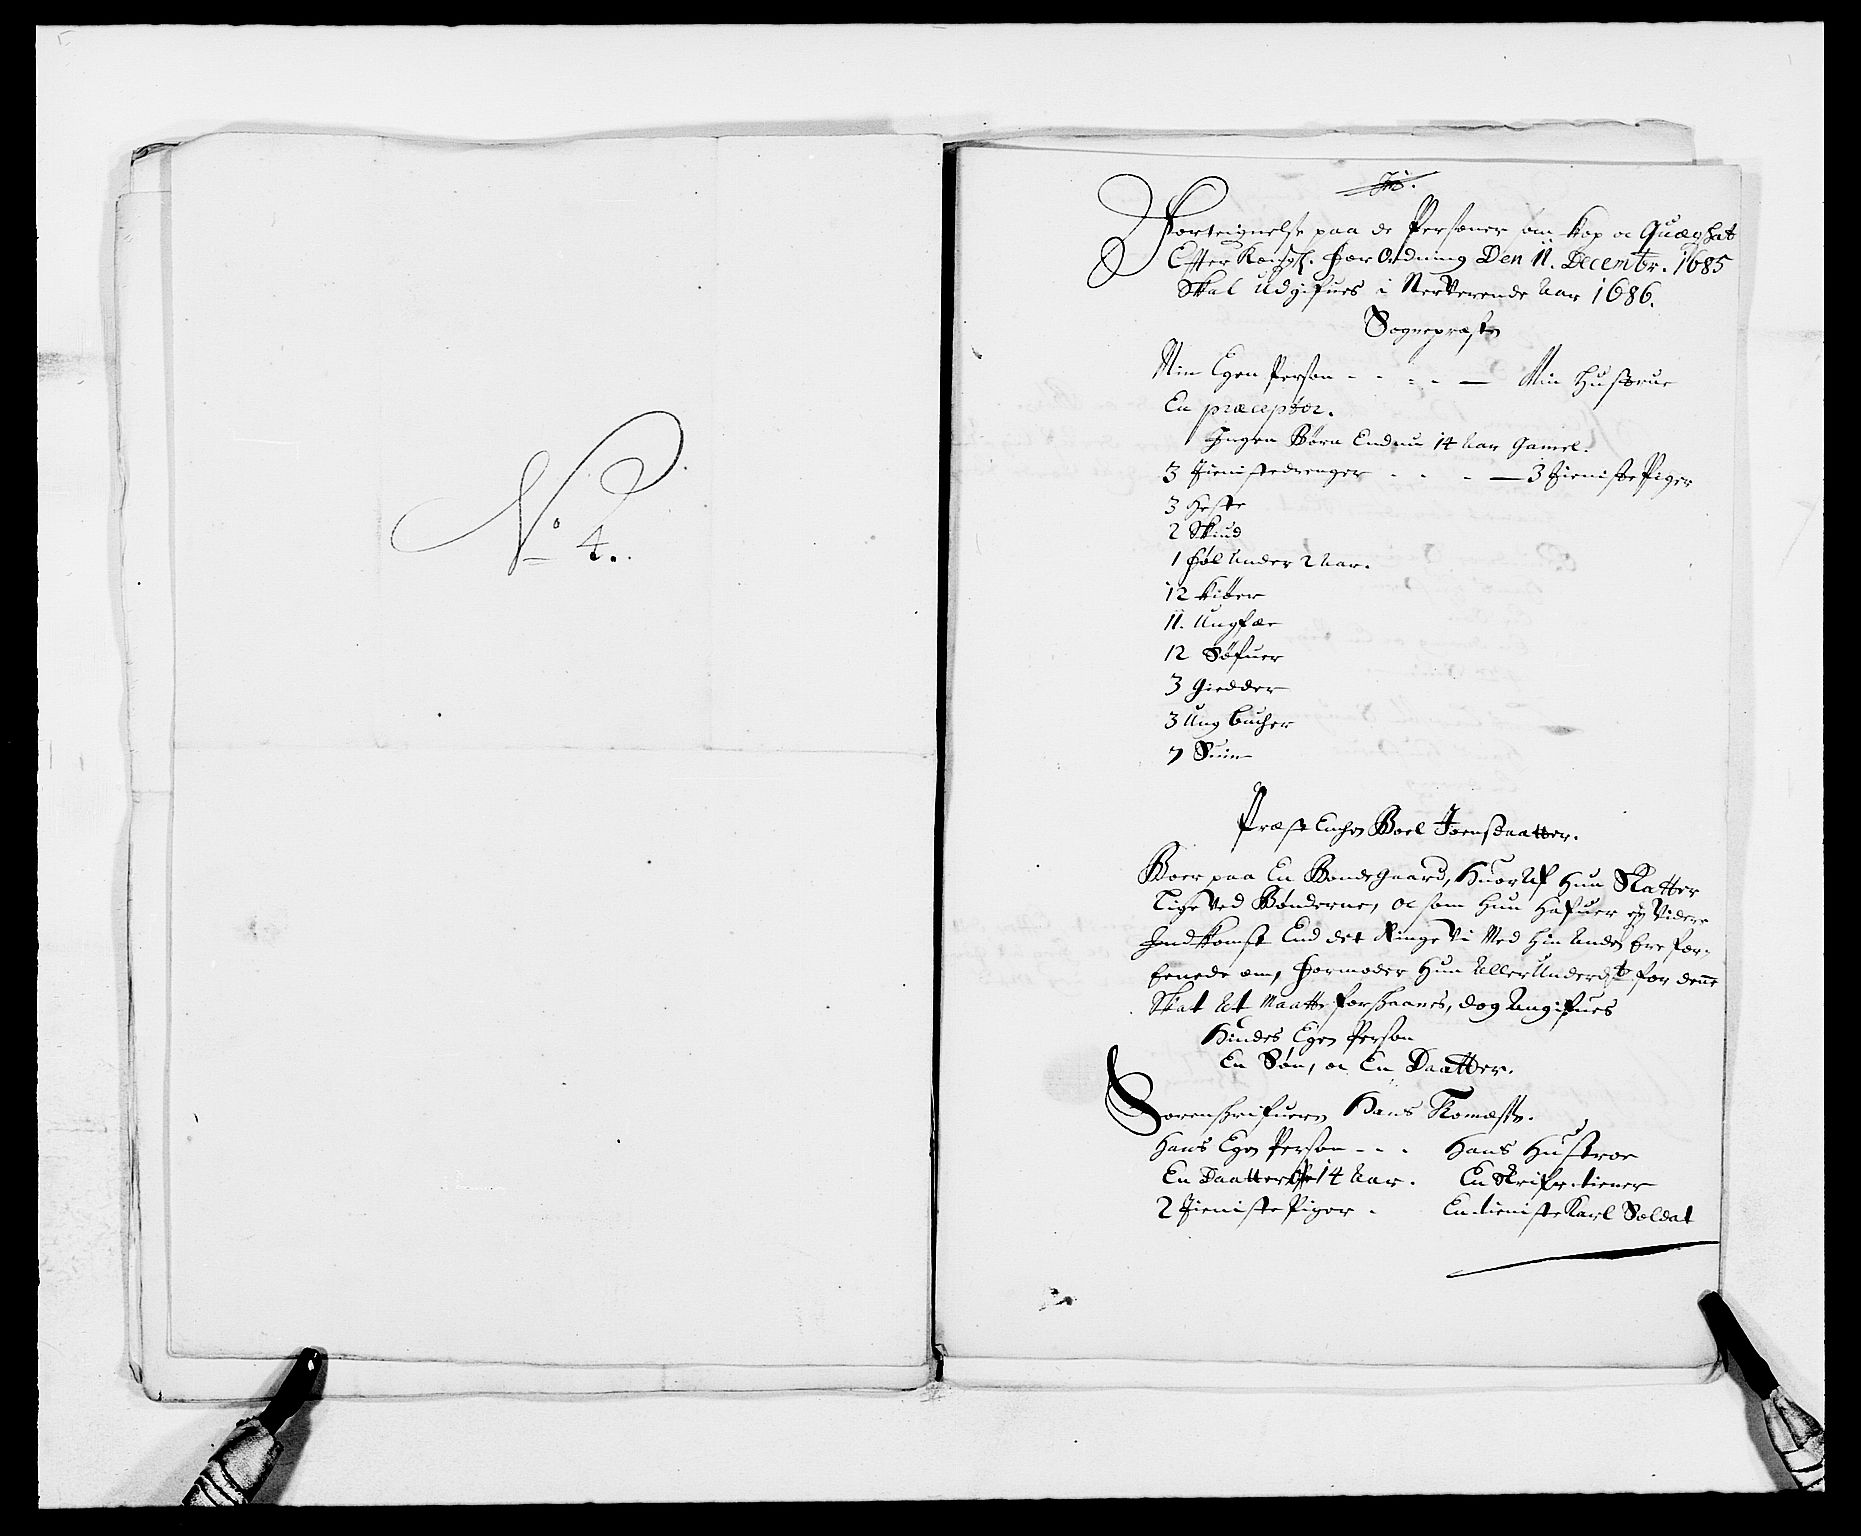 No 4.
Forteignelse paa de Personer som Kop oc Quægskat
Efter Kongl. ForOrdning Den 11. Decembr. 1685
Skal udgifues i NerVerende Aar 1686.
Sognepræsten
Min Egen Person - - - - — Min Hustrue
En præceptor.
Ingen Børn Endnu 14 Aar Gamel.
3 Tienistedrenger - - - — 3 Tieniste Piger
3 Heste
2 Skiud
1 Føl Under 2 Aar.
12 Kiøer
11. Ungfæe
12 Søfuer
3 Giedder
3 Ung bucher
7 Suin
Præst Enchen Boel Jensdaatter.
Boer paa En Bondegaard, Huoraf Hun Skatter
Lige Ved Bønderne, oc som Hun Hafuer ey Videre
Indkomst End det Ringe Vi Med Hin Anden Ere for-
Eenede om, Formoder Hun AllerUnderdst for denne
Skat At Maatte forskaanes, dog Angifues
Hindes Egen Person
En Søn, oc En Daatter.
Sorenskrifueren Hans
Hans Egen Person - - - Hans Hustroe
En Daatter 14 Aar. En Skrifuertiener
2 Tieniste Piger - En tieniste Karl Soldat